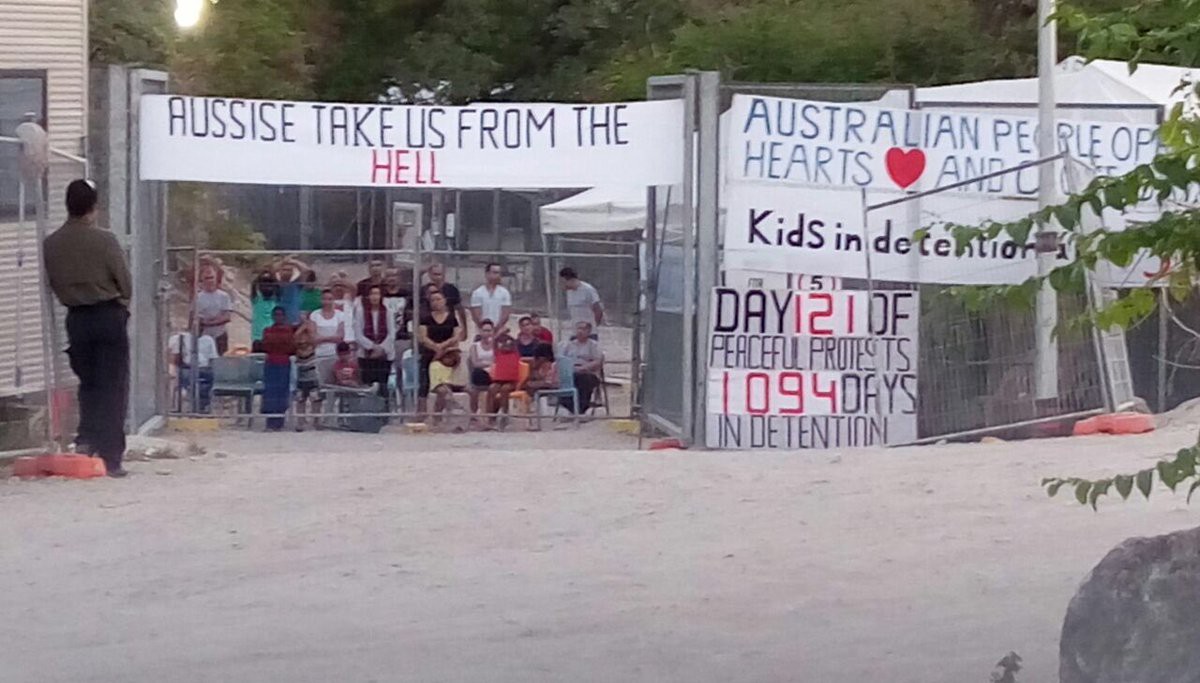 AUSSISE TAKE US FROM THE
HELL
AUSTRALIAN PEOPLE
HEARTS AND
Kids in detention
FOR
5
DAY 121 OF
PEACEFUL PROTESTS
1094 DAYS
IN DETENTION